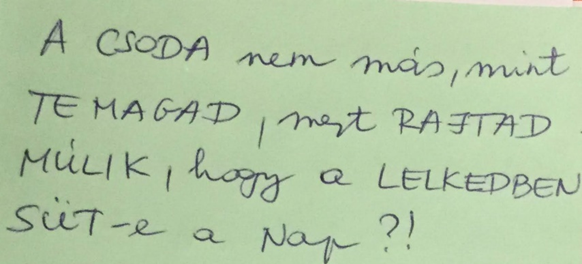 A CSODA nem más, mint
TE MAGAD, mert RAJTAD
MÚLIK, hogy a LELKEDBEN
SÜT-e a Nap?!